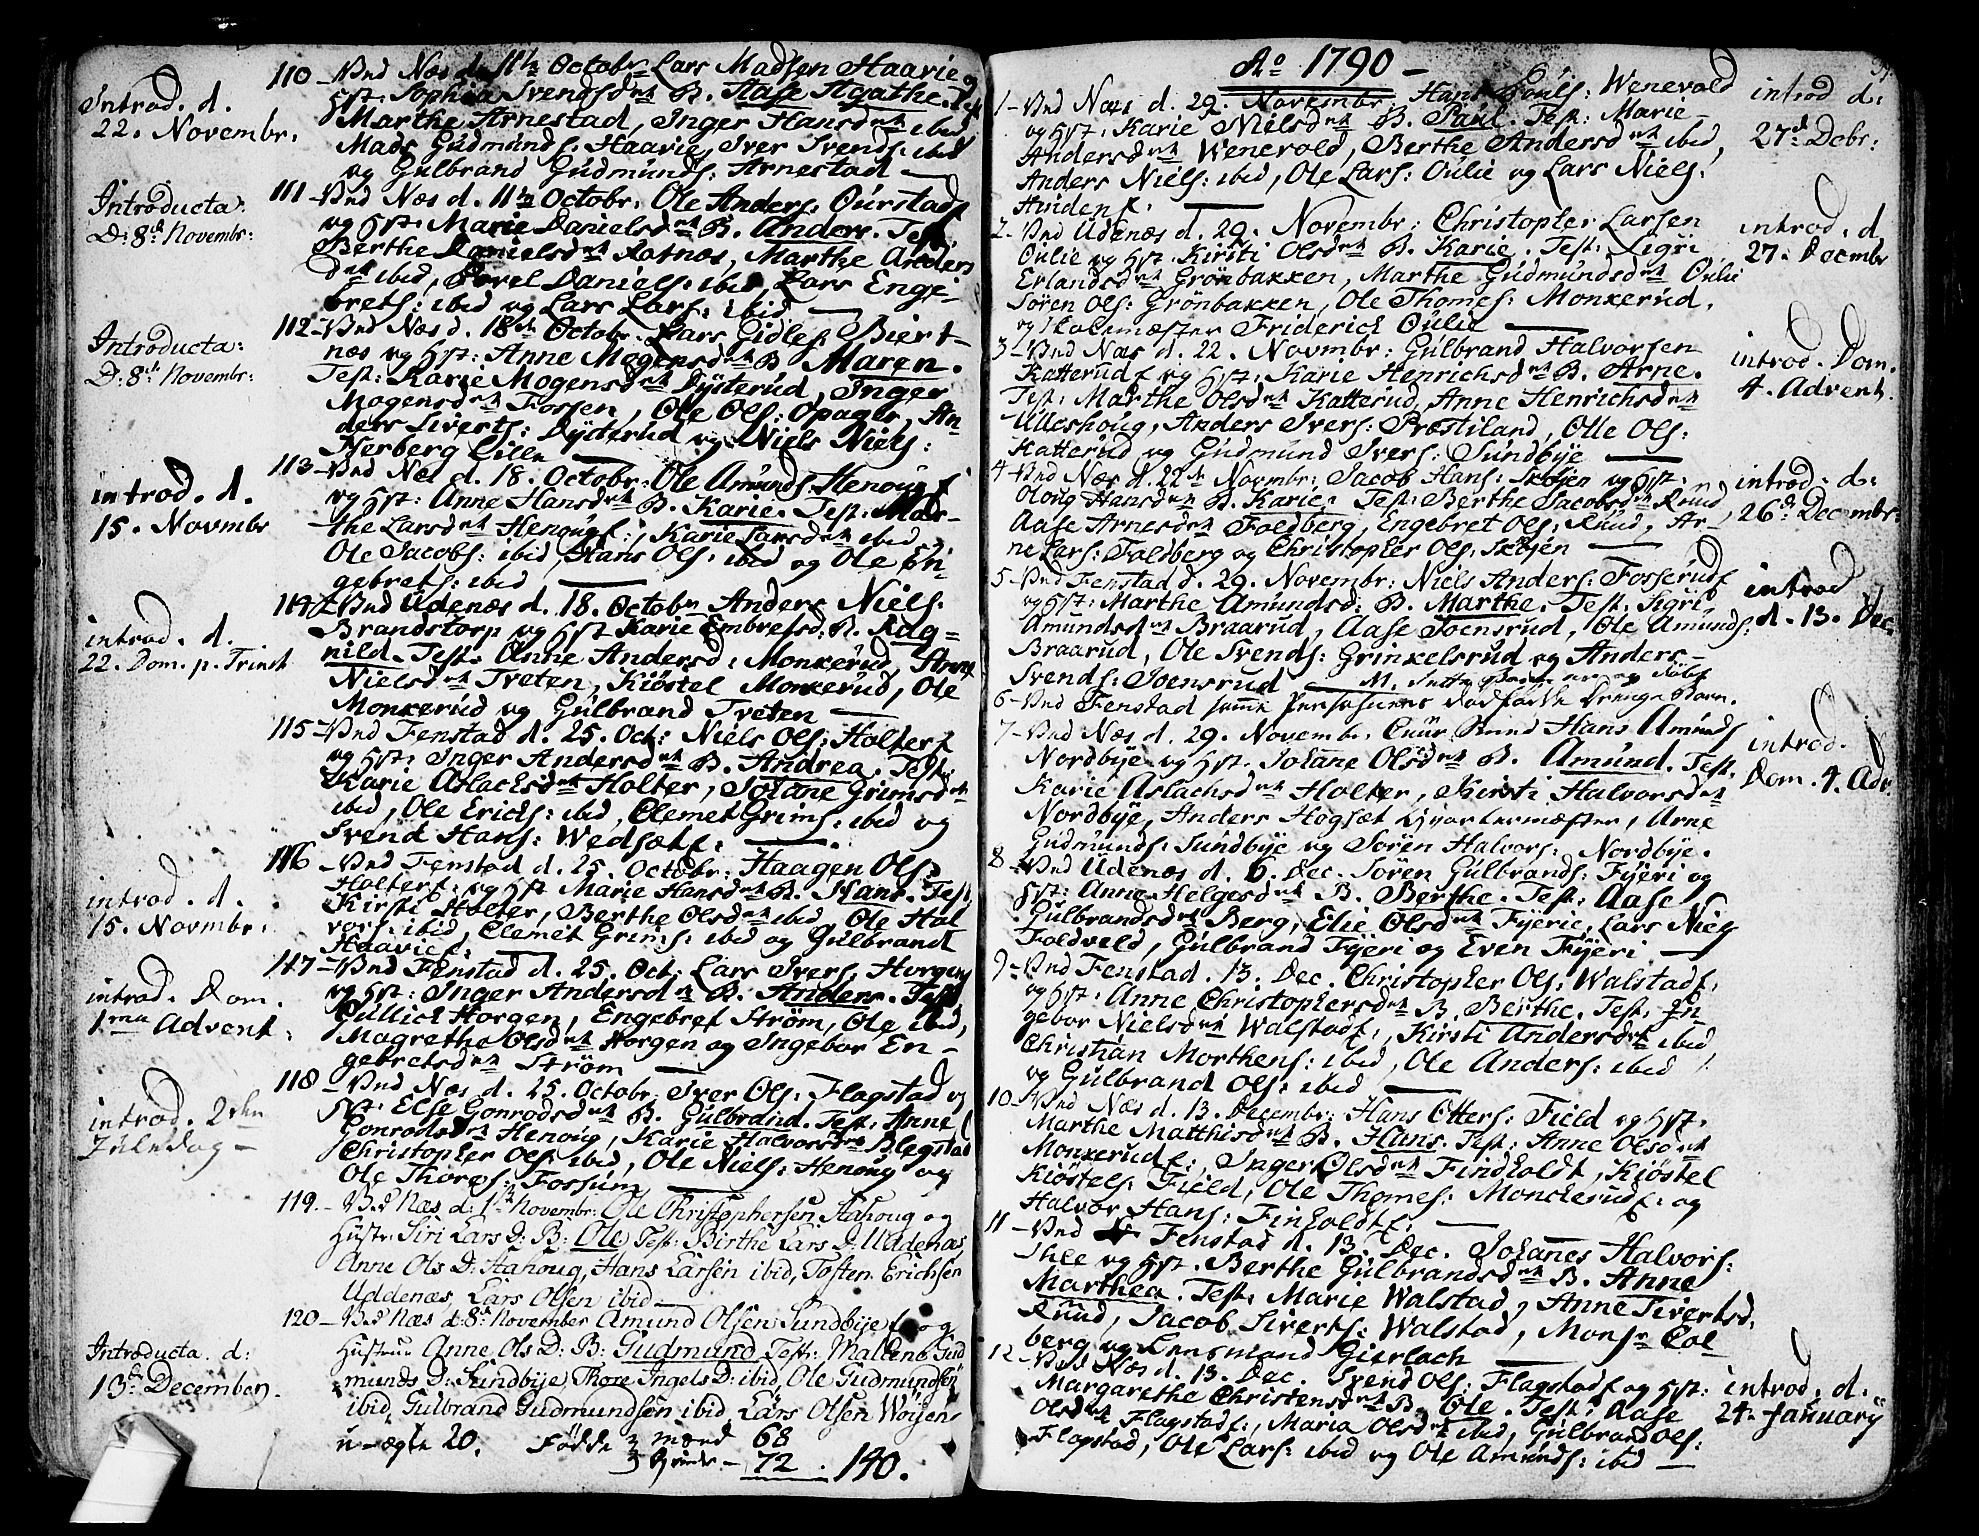 110 - Vnd Næs d. 11te Octobr Lars Madsen Haarie og
Hst. Sophia Svendsdatr B. Aase Agathe. Test
Marthe Arnestad, Inger Hansdatr ibid,
Mads Gudmunds. Haarie, Iver Svends: ibid
og Gulbrand Gudmunds: Arnestad
Introd. d.
22. Novembr:
111 - Vnd Næs d. 11te Octobr. Ole Anders. Ourstad
og Hst: Marie Danielsdatr B. Anders. Test.
Berthe Danielsdatr Rotnæs, Marthe Anders
datr ibid, Povel Daniels: ibid, Lars Enge-
brets: ibid og Lars Lars: ibid
Introducta:
D: 8de Novembr:
112 - Vnd Næs d. 18de Octobr. Lars Gidles Biert-
næs og Hst: Anne Mogensdatr B. Maren.
Test: Karie Mogensdatr Dysterud, Inger
Mogensdatr Fossen, Ole Ols: Opager, An-
ders Siverts: Dysterud og Niels Niels:
Herberg Eilln
Introducta:
D: 8de Novembr:
113 - Vnd Næs d. 18. Octobr. Ole Amunds. Henoug
og Hst: Anne Hansdatr B. Karie. Test: Mar-
the Larsdatr Henoug, Karie Larsdatr ibid
Ole Jacobs: ibid, Hans Ols: ibid og Ole En-
gebrets: ibid
introd. d.
15. Novmbr
114 - Vnd Udenæs d. 18. Octobr Anders Niels:
Brandstorp og Hst Karie Embretsd: B. Rag-
nild. Test. Anne Andersd: Monkerud, Anne
Nielsdatr Tveten, Kiöstel Monkerud, Ole
Monkerud og Gulbrand Tveten
introd. d.
22. Dom. p. Trinit
115 - Vnd Fenstad d. 25. Oct: Niels Ols: Holter
og Hst: Inger Andersdatr B. Andrea. Test:
Karie Aslachsdatr Holter, Johane Grimsdatr
ibid, Ole Erichs: ibid, Clemet Grims: ibid og
Svend Hans: Wedsæt
116 - Vnd Fenstad d. 25. Octobr: Haagen Ols:
Holter og Hst Marie Hansdatr B. Hans. Test
Kirsti Holter, Berthe Olsdatr ibid, Ole Hal
vors: ibid, Clemet Grims: ibid og Gulbrandt
Haarie
introd. d.
15. Novmbr:
117 - Vnd Fenstad d. 25. Oct. Lars Ivers. Horgen
og Hst: Inger Andersdatr B. Anders. Test
Gullich Horgen, Engebret Ström, Ole ibid,
Magrethe Olsdatr Horgen og Ingebor En-
gebretsdatr Ström
introd. Dom.
1ma Advent:
118 - Vnd Næs d. 25. Octobr. Iver Ols: Flagstad og
Hst: Else Gonrodsdatr B. Gulbrand. Test: Anne
Gonrodsdatr Henoug, Karie Halvorsdatr Blegstad
Christopher Ols: ibid, Ole Niels: Henoug og
Ole Thores: Fossum
introd. 2den
Juledag -
119. - V.d Næs d: 1te Novembr: Ole Christophersen Aahoug og
Hustr: Siri Lars D: B: Ole Test: Birthe Lars D: Uddenæs,
Anne Ols D: Aahoug, Hans Larsen ibid, Tosten Erichsen
Uddenæs, Lars Olsen ibid
120 - V.d Næs d: 8de November Amund Olsen Sundbye og
Hustrue Anne Ols D: B: Gudmund Test: Mallene Gud
munds D: Sundbye, Thore Ingels D: ibid, Ole Gudmundsen
ibid, Gulbrand Gudmundsen ibid, Lars Olsen Woyen
Introducta. d:
13de December.
u-ægte 20. Fødde mænd 68
qvinder - 72. 140.
Ao 1790 -
1 - Vnd Næs d. 29. Novembr: Hans Pouls: Wenevold
og Hst: Karie Nielsdatr B. Paul. Test: Marie
Andersdatr Wenevold, Berthe Andersdatr ibid,
Anders Niels: ibid, Ole Lars: Oulie og Lars Niels:
Hvidens:
introd d:
27de Debr:
2 - Vnd Udenæs d. 29. Novembr: Christopher Larsen
Oulie og Hst: Kirsti Olsdatr B. Karie. Test: Sigri
Erlandsdatr Grönbakken, Marthe Gudmundsdatr Oulie
Sören Ols: Grönbakken, Ole Thomes: Monkerud,
og Skolemæster Friderich Oulie
introd. d
27. Decmbr
3 - Vnd Næs d. 22. Novmbr: Gulbrand Halvorsen
Katterud og Hst: Karie Henrichsdatr B. Arne.
Test: Marthe Olsdatr Katterud, Anne Henrichsdatr
Ulleshoug, Anders Ivers: Præstiland, Olle Ols:
Katterud og Gudmund Ivers: Sundbye
introd. Dom.
4. Advent.
4 - Vnd Næs d. 22de Novmbr: Jacob Hans: Skojen og Hst.
Oloug Hansdatr B. Karie. Test: Berthe Jacobsdatr Ruud,
Aase Arnesdatr Foldberg, Engebret Ols: Ruud, Ar-
ne Lars: Foldberg og Christopher Ols: Skojen
introd. d:
26de Decembr:
5 - Vnd Fenstad d. 29. Novembr: Niels Anders: Fosserud
og Hst: Marthe Amundsd: B. Marthe. Test. Sigri
Amundsdatr Braarud, Aase Joensrud, Ole Amunds:
Braarud, Ole Svends: Grinkelsrud og Anders
Svends: Joensrud
introd
d. 13. Dec.
6 - Vnd Fenstad samme Personers dødfødde Drenge Barn.
7 - Vnd Næs d. 29. Novembr. Hans Amunds
Nordbye og Hst. Johane Olsdatr B. Amund. Test.
Karie Aslachsdatr Holter, Kirsti Halvorsdatr
Nordbye, Anders Hogsæt Qvartermæster, Arne
Gudmunds: Sundbye og Sören Halvors: Nordbye.
introd. d
Dom. 4. Adv.
8 - Vnd Udenæs d. 6. Dec. Sören Gulbrands: Fyeri og
Hst: Anne Helgesdatr B. Berthe. Test: Aase
Gulbrandsdatr Berg, Elie Olsdatr Fyerie, Lars Niels
Foldveld, Gulbrand Fyeri og Even Fyeri
9 - Vnd Fenstad. 13. Dec. Christopher Ols: Walstad
og Hst: Anne Christophersdatr B. Berthe. Test. In-
gebor Nielsdatr Walstad, Kirsti Andersdatr ibid,
Christian Morthens: ibid, Ole Anders: ibid
og Gulbrand Ols: ibid
10 - Vnd Næs d. 13. Decembr: Hans Otters: Field og Hst.
Marthe Matthisdatr B. Hans. Test: Anne Olsdatr
Monkerud, Inger Olsdatr Findholdt, Kiöstel
Kiöstels: Field, Ole Thomes: Monckerud og
Halvor Hans: Finholdt
11 - Vnd Fenstad d. 13. Dec. Johanes Halvors:
Ihle og Hst. Berthe Gulbrandsdatr B. Anne
Marthea. Test: Marie Walstad, Anne Sivertsd.
Ruud, Jacob Siverts: Walstad, Monsr Col
berg og Lensmand Gierlach
12 - Vnd Næs d. 13. Dec. Svend Ols: Flagstad og Hst:
Margarethe Christensdatr B. Ole. Test: Aase
Olsdatr Flagstad, Maria Olsdatr ibid, Gulbrand Ols:
Flagstad, Ole Lars: ibid og Ole Amunds: ibid
introd. d.
24de January